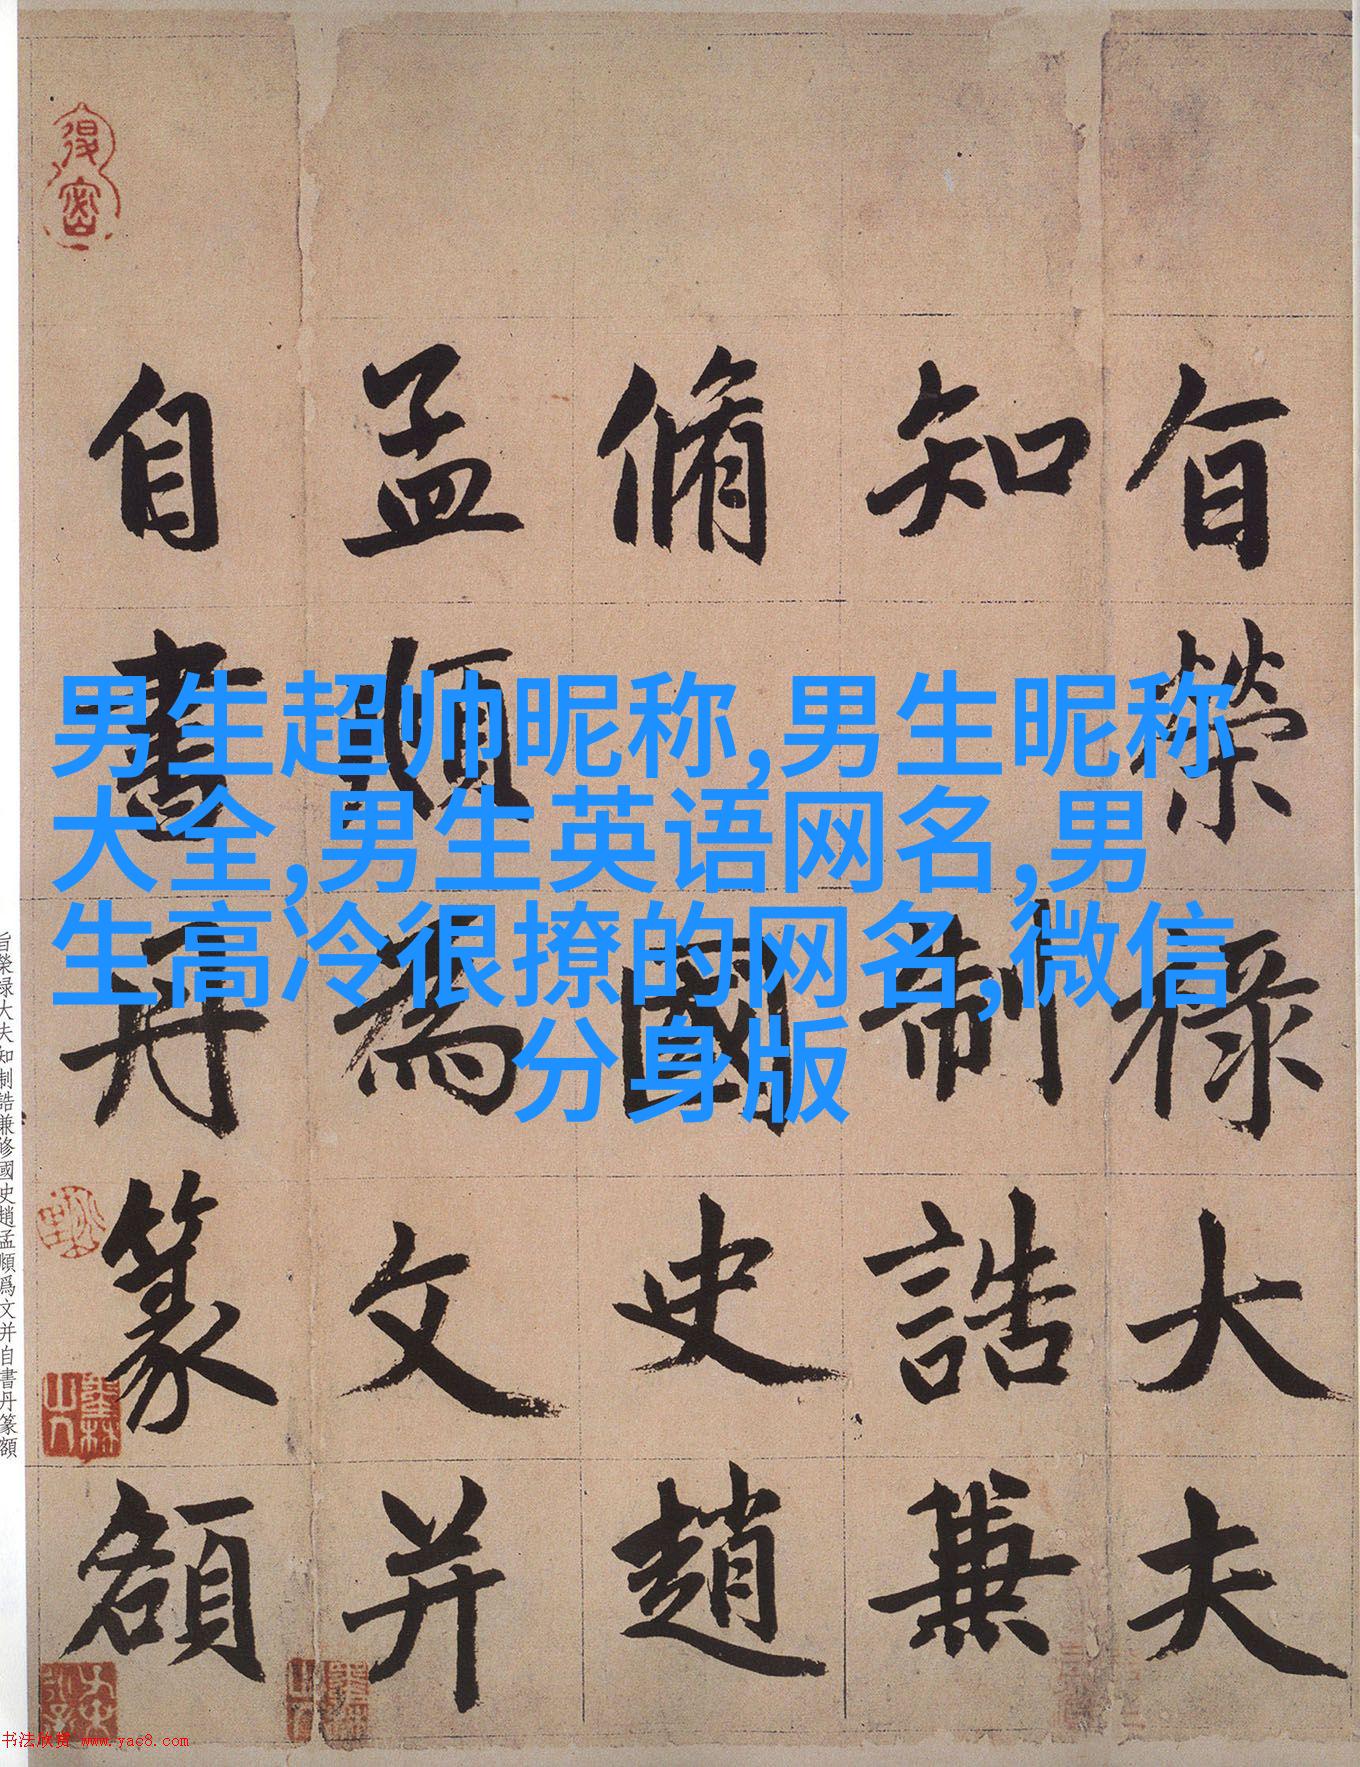 旨榮祿大夫
知制誥兼
脩國史趙
孟頫為文并
自書丹篆額
男生超帅昵称,男生昵称
大全,男生英语网名,男
生高冷很撩的网名,微信
分身版
旨榮禄大夫知制誥兼修國史趙孟頫爲文并自書丹篆額
书法欣赏 www.yac8.com